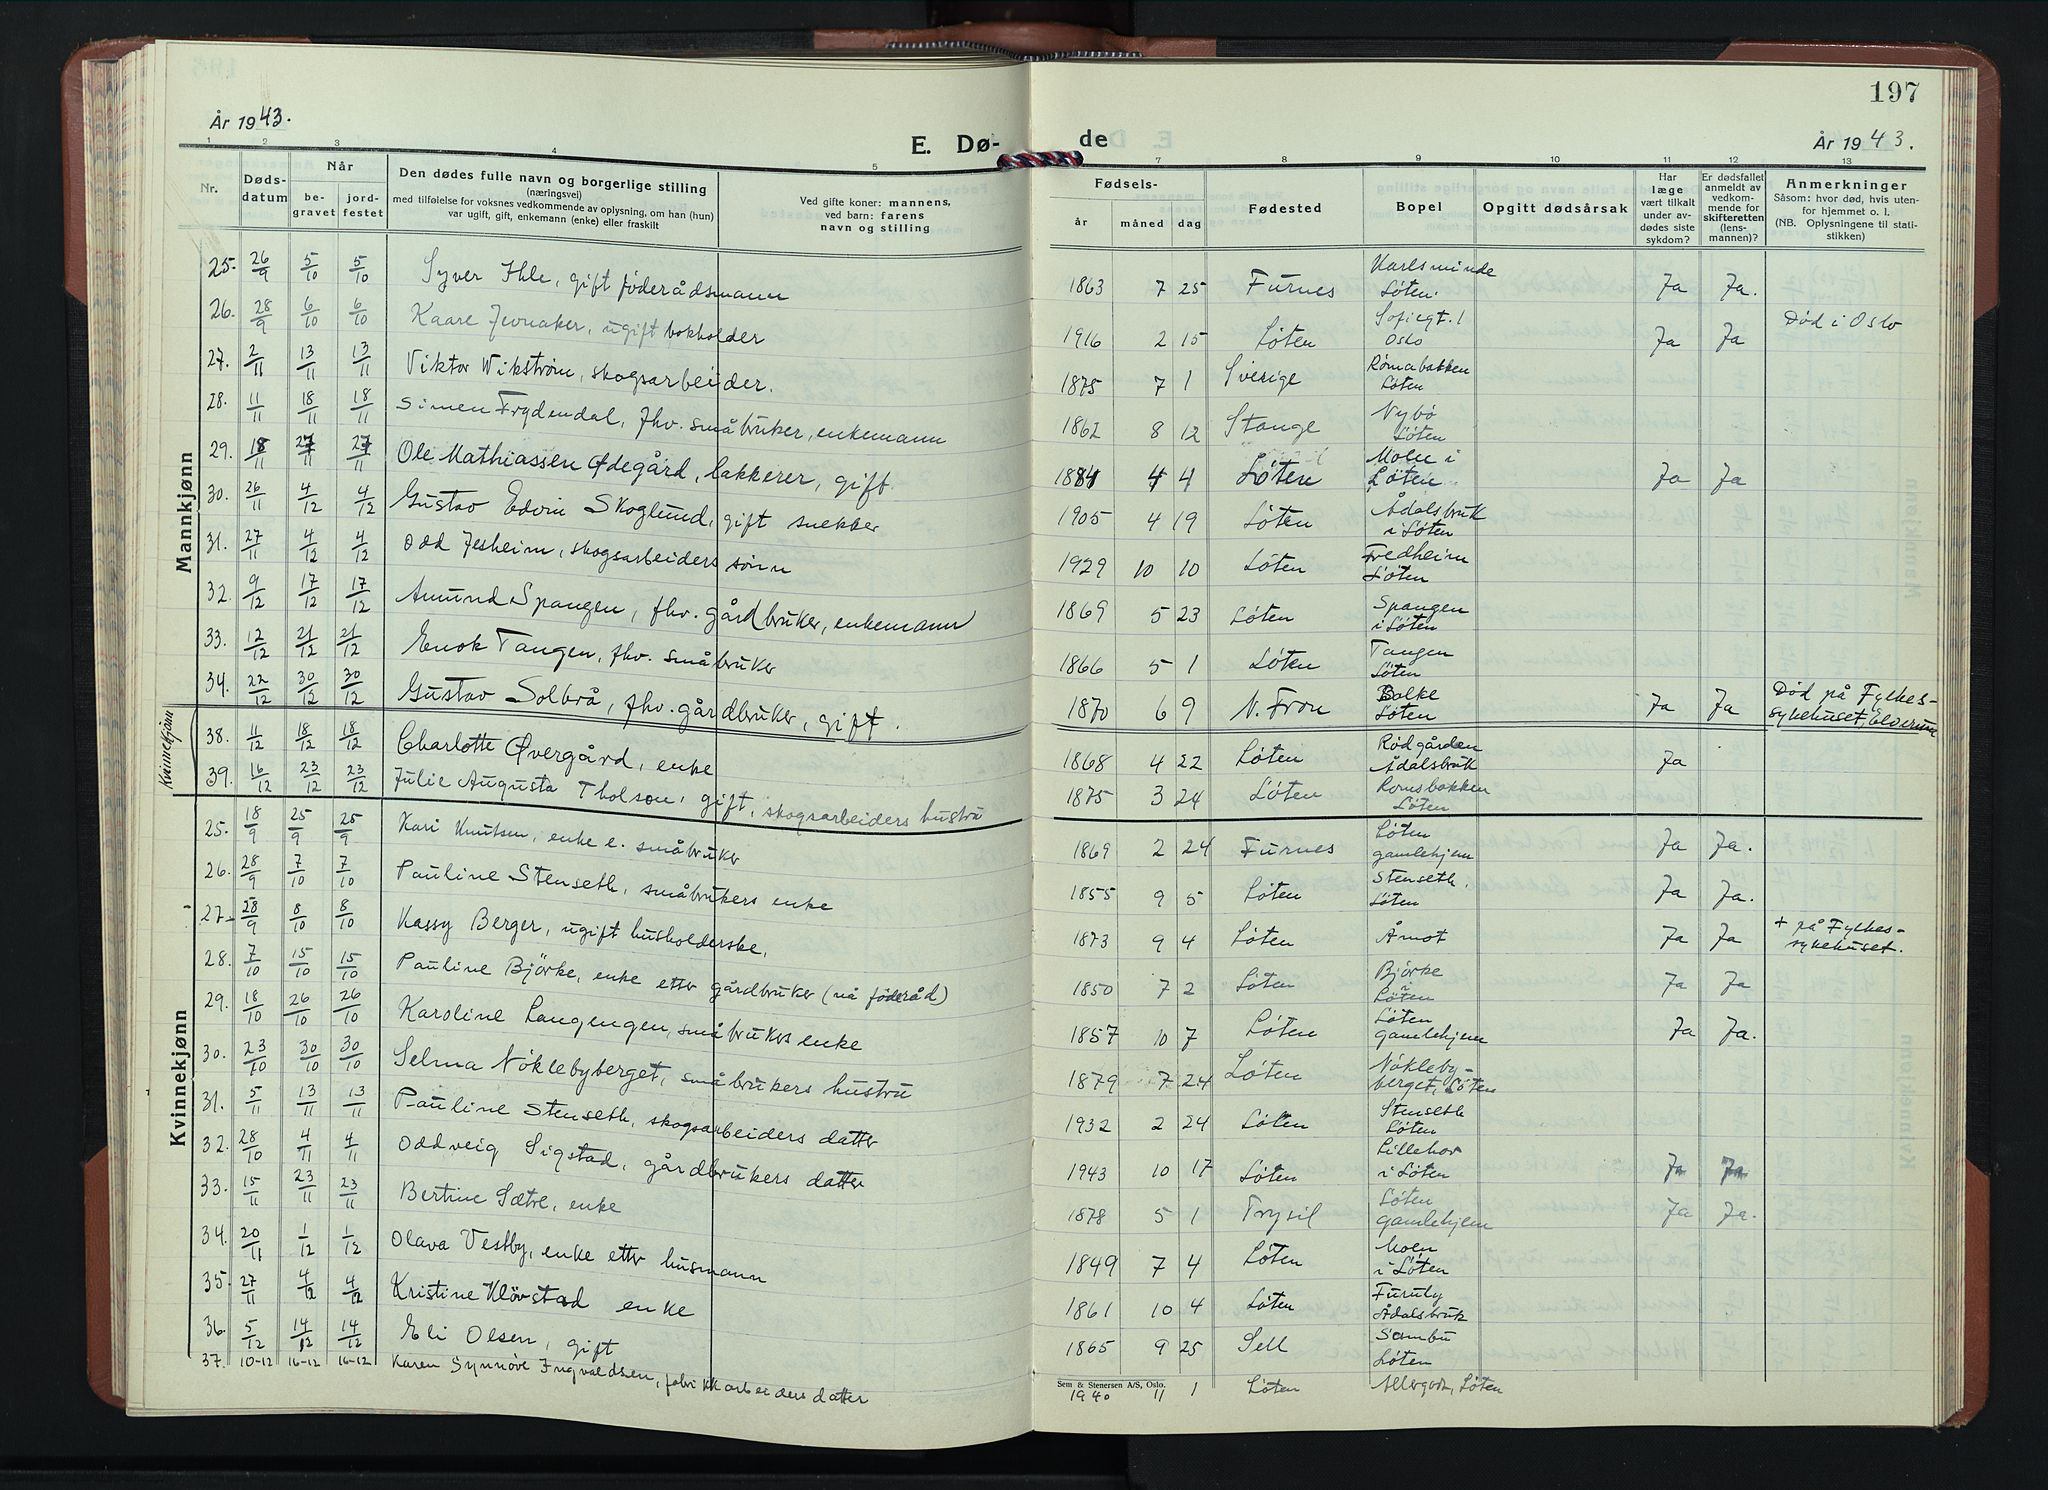 197
År 1943.
E. Dø-
de
År 1943.
1 2 3 4 5 7 8 9 10 11 12 13
Nr.
Døds-
datum
Når
be-
gravet
jord-
festet
Den dødes fulle navn og borgerlige stilling
(næringsvei)
med tilføielse for voksnes vedkommende av oplysning, om han (hun)
var ugift, gift, enkemann (enke) eller fraskilt
Ved gifte koner: mannens,
ved barn: farens
navn og stilling
Fødsels-
år måned dag
Fødested
Bopel
Opgitt dødsårsak
Har
læge
vært tilkalt
under av-
dødes siste
sykdom?
Er dødsfallet
anmeldt av
vedkom-
mende for
skifteretten
(lens-
mannen)?
Anmerkninger
Såsom: hvor død, hvis uten-
for hjemmet o. l.
(NB. Oplysningene til stati-
stikken)
Mannkjønn
25. 26/9 5/10 5/10 Syver Ihle, gift føderådsmann 1863 7 25 Furnes Karlsminde Løten. Ja Ja.
26. 28/9 6/10 6/10 Kaare Jevnaker, ugift bokholder 1916 2 15 Løten Sofiegt. 1 Oslo Ja Ja Død i Oslo
27. 2/11 13/11 13/11 Viktor Wikstrøm, skogsarbeider. 1875 7 1 Sverige Rømabakken Løten
28. 11/11 18/11 18/11 Simen Frydendal, fhv. småbruker, enkemann 1862 8 12 Stange Nybø Løten
29. 18/11 27/11 27/11 Ole Mathiassen Ødegård, lakkerer, gift. 1884 4 4 Løten Moen i Løten Ja Ja
30. 26/11 4/12 4/12 Gustav Edvin Skoglund, gift snekker 1905 4 19 Løten Ådalsbruk i Løten
31. 27/11 4/12 4/12 Odd Jesheim, skogsarbeiders sønn 1929 10 10 Løten Fredheim Løten
32. 9/12 17/12 17/12 Amund Spangen, fhv. gårdbruker, enkemann 1869 5 23 Løten Spangen i Løten
33. 12/12 21/12 21/12 Enok Tangen, fhv. småbruker 1866 5 1 Løten Tangen Løten
34. 22/12 30/12 30/12 Gustav Solbrå, fhv. gårdbruker, gift. 1870 6 9 N. Fron Bolke Løten Ja Ja Død på Fylkes-sykehuset, Elverum
Kvinnekjønn
38. 11/12 18/12 18/12 Charlotte Øvergård, enke 1868 4 22 Løten Rødgården Ådalsbruk Ja
39. 16/12 23/12 23/12 Julie Augusta Tholson, gift, skogsarbeiders hustru 1875 3 24 Løten Romsbakken Løten
Kvinnekjønn
25. 18/9 25/9 25/9 Kari Knutsen, enke e. småbruker 1869 2 24 Furnes Løten gamlehjem Ja Ja.
26. 28/9 7/10 7/10 Pauline Stenseth, småbrukers enke 1855 9 5 Løten Stenseth, Løten Ja Ja.
27. 28/9 8/10 8/10 Kassy Berger, ugift husholderske. 1873 9 4 Løten Åmot Ja Ja + på Fylkes-sykehuset.
28. 7/10 15/10 15/10 Pauline Björke, enke etter gårdbruker (nå føderåd) 1850 7 2 Løten Björke i Løten Ja Ja
29. 18/10 26/10 26/10 Karoline Langengen, småbrukers enke 1857 10 7 Løten Løten gamlehjem Ja Ja.
30. 23/10 30/10 30/10 Selma Nöklebyberget, småbrukers hustru 1879 7 24 Løten Nökleby-berget, Løten
31. 5/11 13/11 13/11 Pauline Stenseth, skogsarbeiders datter 1932 2 24 Løten Stenseth Løten
32. 28/10 4/11 4/11 Oddveig Sigstad, gårdbrukers datter 1943 10 17 Løten Lillehov i Løten Ja Ja
33. 15/11 23/11 23/11 Bertine Sætre, enke 1878 5 1 Trysil Løten gamlehjem Ja Ja.
34. 20/11 1/12 1/12 Olava Vestby, enke etter husmann 1849 7 4 Løten Moen i Løten
35. 27/11 4/12 4/12 Kristine Klövstad enke 1861 10 4 Løten Furuly Ådalsbruk
36. 5/12 14/12 14/12 Eli Olsen, gift 1865 9 25 Sell Sambu Løten
37. 10-12 16-12 16-12 Karen Synnöve Ingvaldsen, fabrikkarbeiders datter 1940 11 1 Løten Løten
Sem & Stenersen A/S, Oslo.